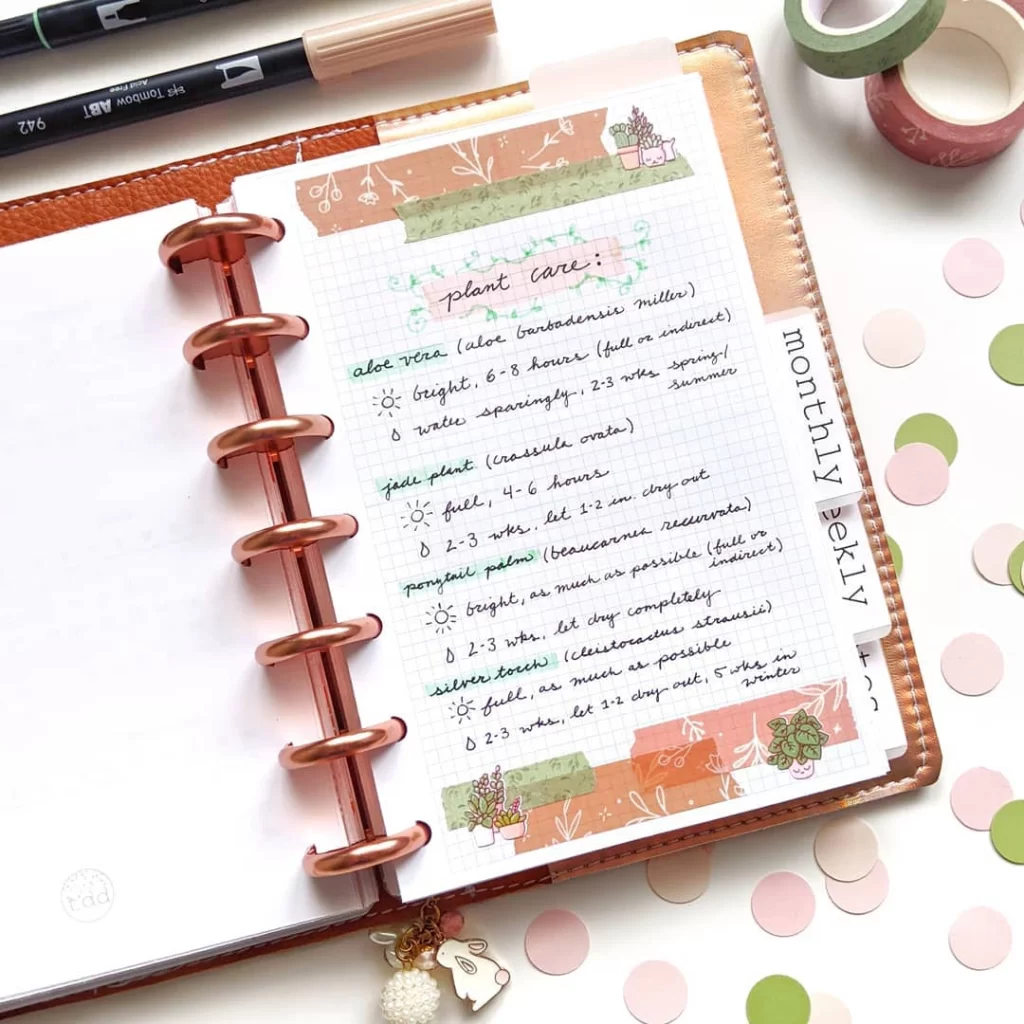 942 Tombow ABT Acid Free
plant care:
aloe vera (aloe barbadensis miller)
bright, 6-8 hours (full or indirect)
water sparingly, 2-3 wks spring/
summer
jade plant (crassula ovata)
full, 4-6 hours
2-3 wks, let 1-2 in. dry out
ponytail palm (beaucarnea recurvata)
bright, as much as possible (full or
indirect)
2-3 wks, let dry completely
silver torch (cleistocactus strausii)
full, as much as possible
2-3 wks, let 1-2 dry out, 5 wks in
winter
monthly
eekly
t.dd